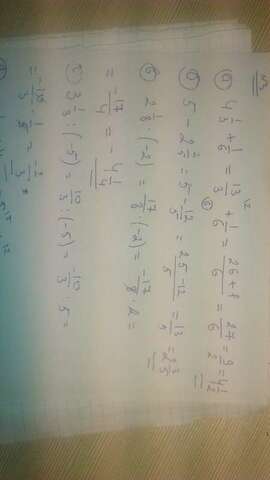 4 1/3 + 1/6 = 13/3 + 1/6 = 26+1/6 = 27/6 = 9/2 = 4 1/2
5 - 2 2/5 = 5 - 12/5 = 25-12/5 = 13/5 = 2 3/5
2 1/8 · (-2) = 17/8 · (-2) = -17/8 · 2 =
= -17/4 = -4 1/4
3 1/3 : (-5) = 10/3 : (-5) = -10/3 · 5 =
= -10/3 · 1/5 = -2/3